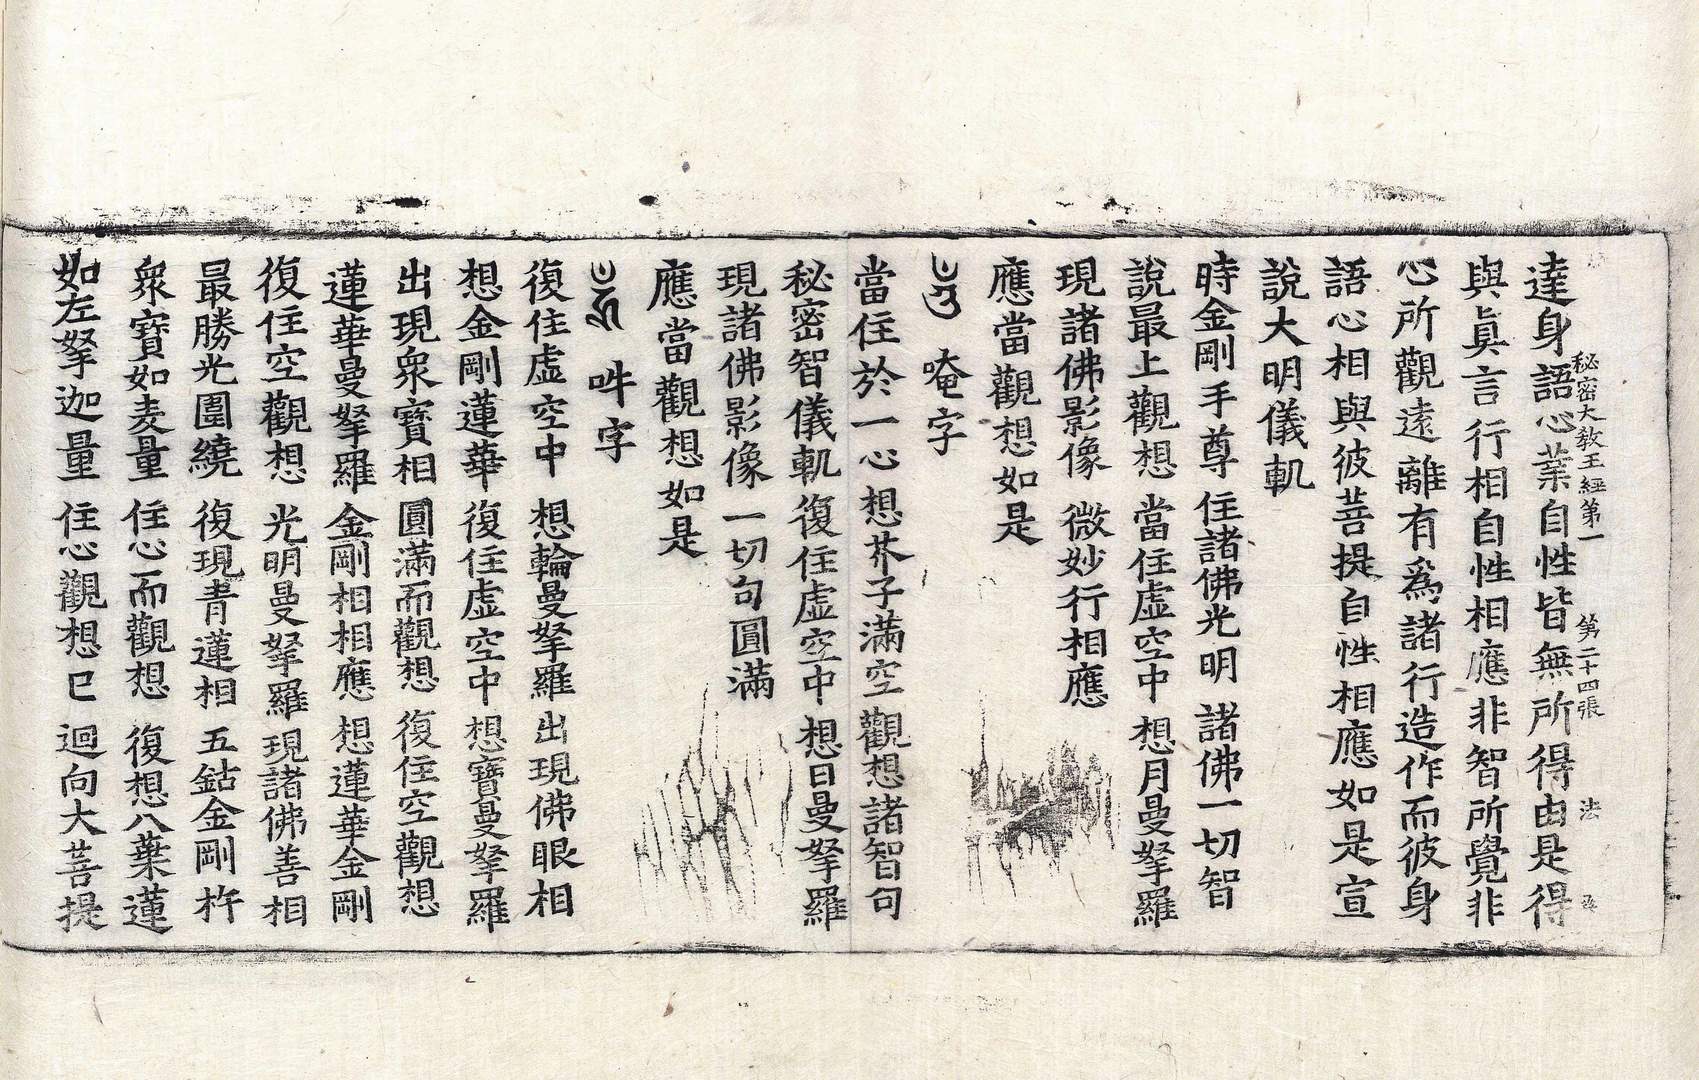 秘密大教王經第一 第二十四張 法
達身語心業自性皆無所得由是得
與眞言行相自性相應非智所覺非
心所觀遠離有爲諸行造作而彼身
語心相與彼菩提自性相應如是宣
說大明儀軌
時金剛手尊 住諸佛光明 諸佛一切智
說最上觀想 當住虛空中 想月曼拏羅
現諸佛影像 微妙行相應
應當觀想如是
唵字
當住於一心 想芥子滿空 觀想諸智句
秘密智儀軌 復住虛空中 想日曼拏羅
現諸佛影像 一切句圓滿
應當觀想如是
吽字
復住虛空中 想輪曼拏羅 出現佛眼相
想金剛蓮華 復住虛空中 想寶曼拏羅
出現衆寶相 圓滿而觀想 復住空觀想
蓮華曼拏羅 金剛相相應 想蓮華金剛
復住空觀想 光明曼拏羅 現諸佛善相
最勝光圍繞 復現青蓮相 五鈷金剛杵
衆寶如麦量 住心而觀想 復想八葉蓮
如左拏迦量 住心觀想已 迴向大菩提